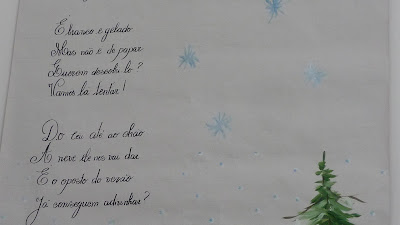 É branco e gelado
Mas não é de papar
Querem descobri-lo?
Vamos lá tentar!
Do céu até ao chão
A neve ele nos vai dar
E o oposto do verão
Já conseguem adivinhar?